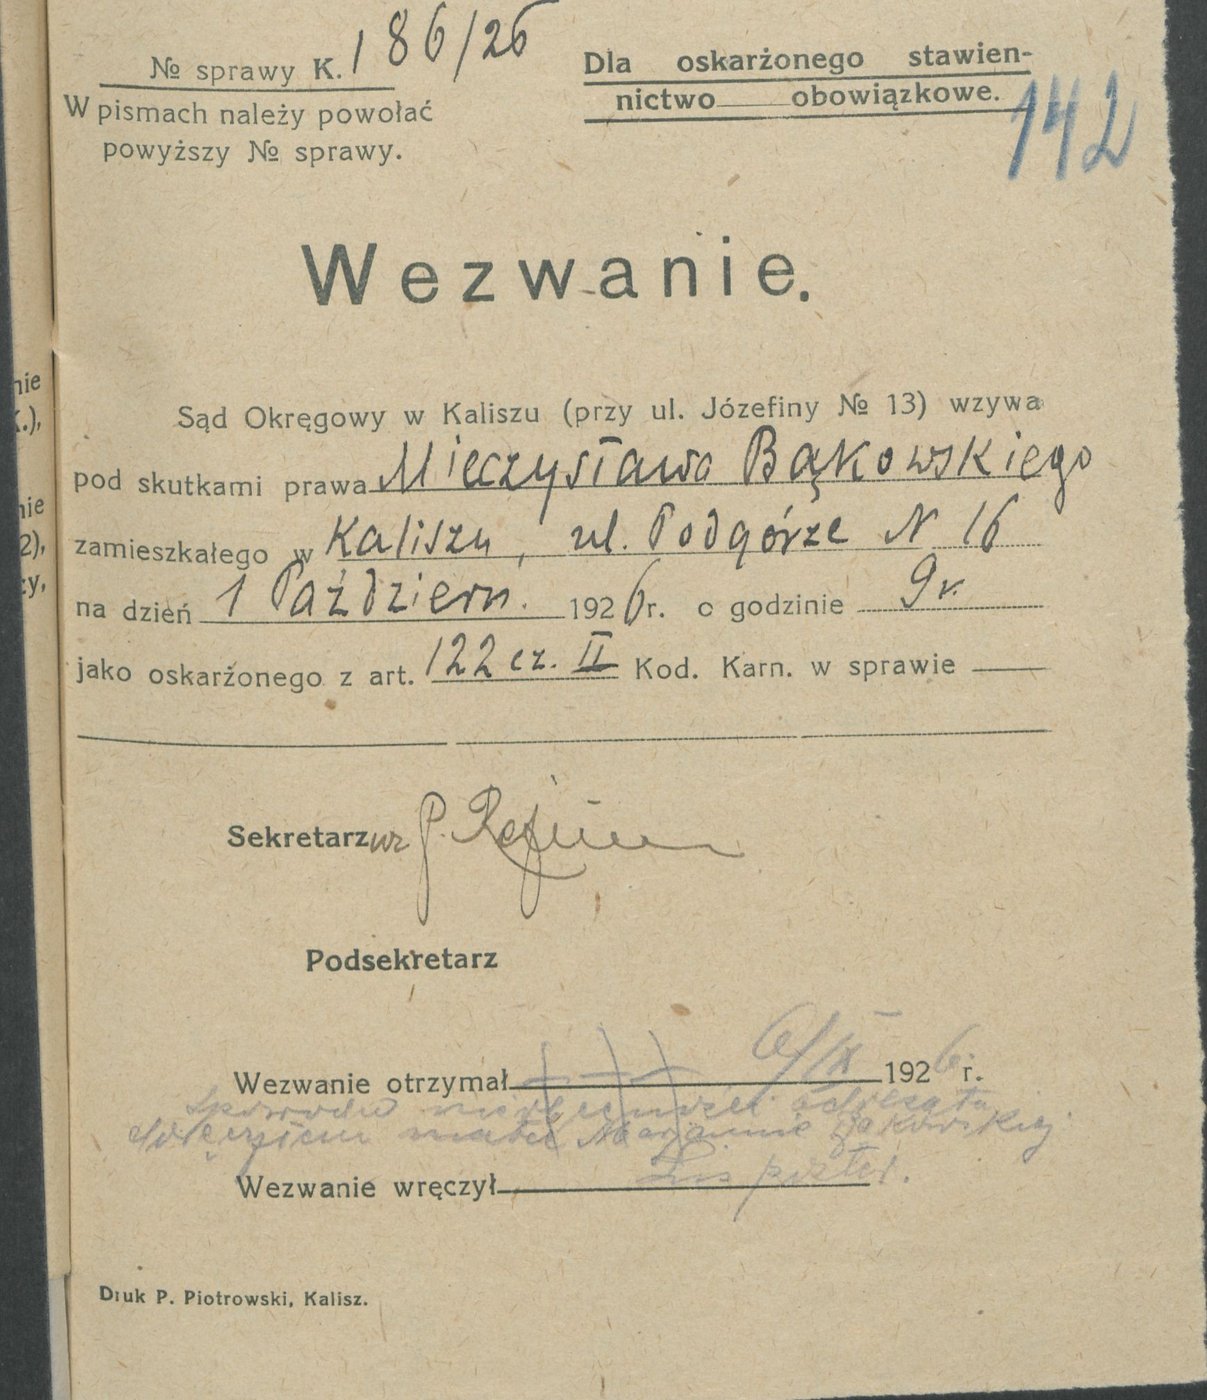 № sprawy K. 186/26
W pismach należy powołać
powyższy № sprawy.
Dla oskarżonego stawien-
nictwo obowiązkowe.
142
Wezwanie.
nie
K.),
Sąd Okręgowy w Kaliszu (przy ul. Józefiny № 13) wzywa
pod skutkami prawa Mieczysława Bąkowskiego
nie
2),
zamieszkałego w Kaliszu, ul. Podgórze N 16
na dzień 1 Październ. 1926 r. o godzinie 9 r.
jako oskarżonego z art. 122 cz. II Kod. Karn. w sprawie
Sekretarz wz
Podsekretarz
Wezwanie otrzymał 6/IX 1926 r.
Spowodu nieobecności adresata
doręczyłem matce Marjannie Bąkowskiej
Wezwanie wręczył
Druk P. Piotrowski, Kalisz.